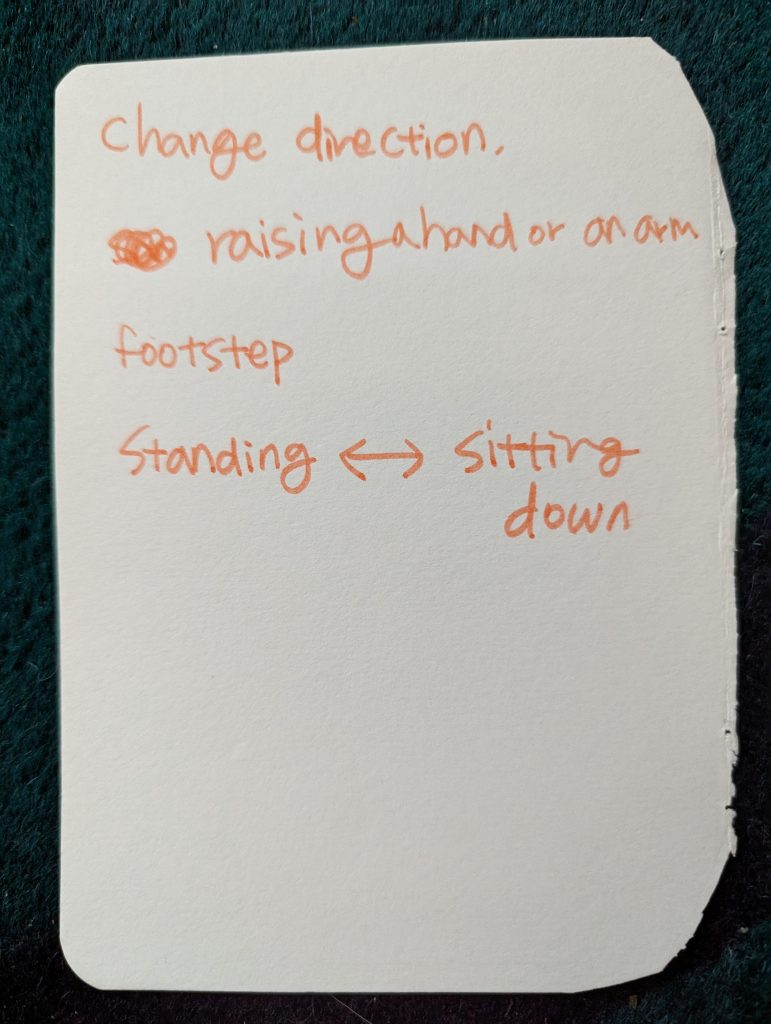 Change direction.
raising a hand or an arm
footstep
Standing ↔ sitting
down